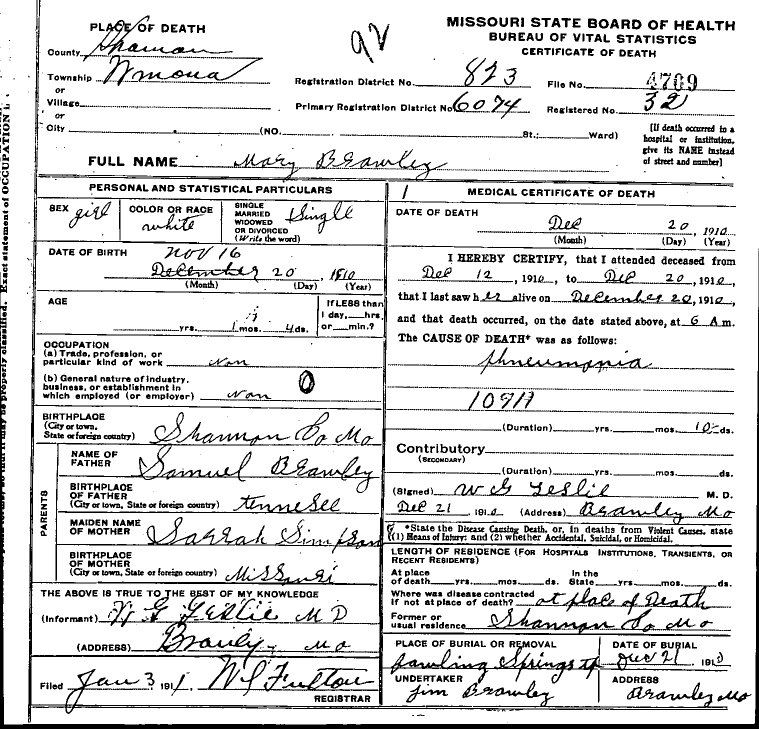 PLACE OF DEATH
County Shannon
Township Winona
or
Village
or
City (NO. St.; Ward)
92
MISSOURI STATE BOARD OF HEALTH
BUREAU OF VITAL STATISTICS
CERTIFICATE OF DEATH
Registration District No. 823 File No. 4709
Primary Registration District No. 6074 Registered No. 32
[If death occurred in a
hospital or institution,
give its NAME instead
of street and number]
FULL NAME Mary Brawley
PERSONAL AND STATISTICAL PARTICULARS
SEX girl
COLOR OR RACE white
SINGLE
MARRIED
WIDOWED
OR DIVORCED
(Write the word)
Single
DATE OF BIRTH Nov 16
December 20, 1910
(Month) (Day) (Year)
AGE
yrs. 1 mos. 4 ds.
If LESS than
1 day, hrs.
or min.?
OCCUPATION
(a) Trade, profession, or
particular kind of work non
(b) General nature of industry,
business, or establishment in
which employed (or employer) non
0
BIRTHPLACE
(City or town,
State or foreign country) Shannon Co Mo
PARENTS
NAME OF
FATHER Samuel Brawley
BIRTHPLACE
OF FATHER
(City or town, State or foreign country) tennesee
MAIDEN NAME
OF MOTHER Sarrah Simpson
BIRTHPLACE
OF MOTHER
(City or town, State or foreign country) Missouri
THE ABOVE IS TRUE TO THE BEST OF MY KNOWLEDGE
(Informant) W G Leslie M D
(ADDRESS) Brawley Mo
Filed Jan 3 1911. Fulton
REGISTRAR
1 MEDICAL CERTIFICATE OF DEATH
DATE OF DEATH
Dec 20, 1910
(Month) (Day) (Year)
I HEREBY CERTIFY, that I attended deceased from
Dec 12, 1910, to Dec 20, 1910,
that I last saw her alive on December 20, 1910,
and that death occurred, on the date stated above, at 6 A m.
The CAUSE OF DEATH* was as follows:
phneumonia
109A
(Duration) yrs. mos. 10 ds.
Contributory
(SECONDARY)
(Duration) yrs. mos. ds.
(Signed) W G Leslie M. D.
Dec 21 1910 (Address) Brawley Mo
*State the Disease Causing Death, or, in deaths from Violent Causes, state
(1) Means of Injury; and (2) whether Accidental, Suicidal, or Homicidal.
LENGTH OF RESIDENCE (FOR HOSPITALS INSTITUTIONS, TRANSIENTS, OR
RECENT RESIDENTS)
At place
of death yrs. mos. ds.
In the
State yrs. mos. ds.
Where was disease contracted
if not at place of death? at place of Death
Former or
usual residence Shannon Co Mo
PLACE OF BURIAL OR REMOVAL
Springs
DATE OF BURIAL
Dec 21 1910
UNDERTAKER
Jim Brawley
ADDRESS
Brawley Mo
properly classified. Exact statement of OCCUPATION